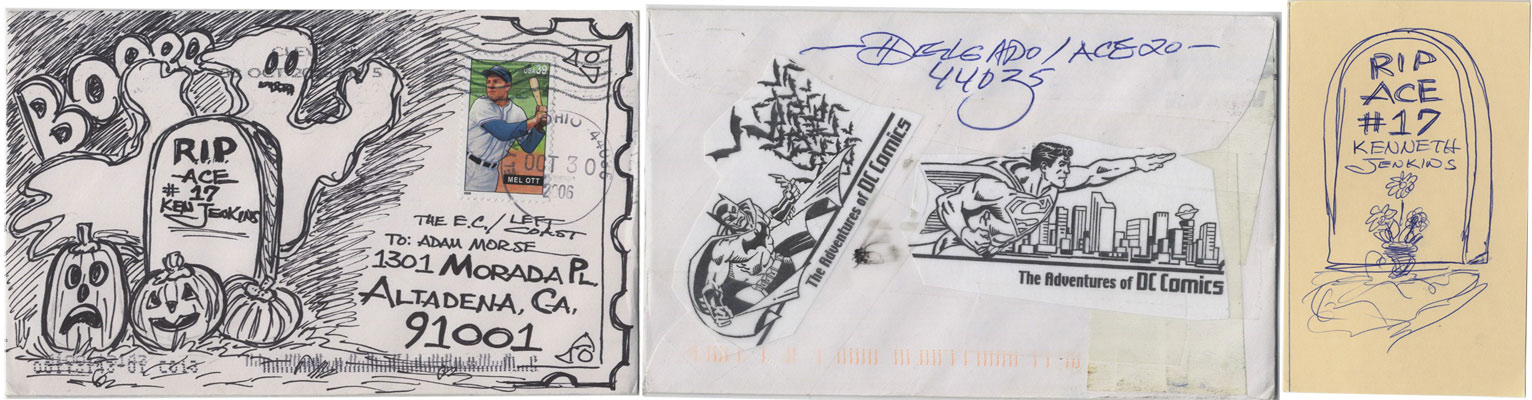 BOOOO
RIP
ACE
#17
KEN JENKINS
USA 39
MEL OTT
OHIO
OCT 30
2006
THE E.C./LEFT COAST
TO: ADAM MORSE
1301 MORADA PL.
ALTADENA, CA.
91001
DELGADO/ACE20
44035
The Adventures of DC Comics
The Adventures of DC Comics
RIP
ACE
#17
KENNETH
JENKINS